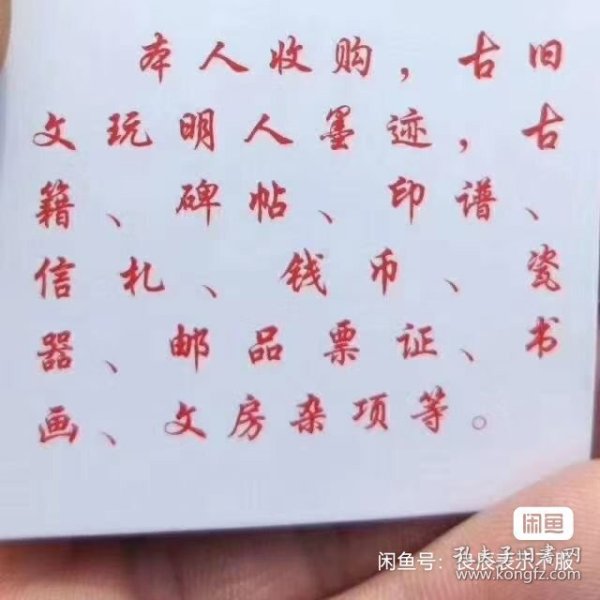 本人收购，古旧
文玩明人墨迹，古
籍、碑帖、印谱、
信札、钱币、瓷
器、邮品票证、书
画、文房杂项等。
闲鱼
闲鱼号：良辰表示不服
孔夫子旧书网
www.kongfz.com